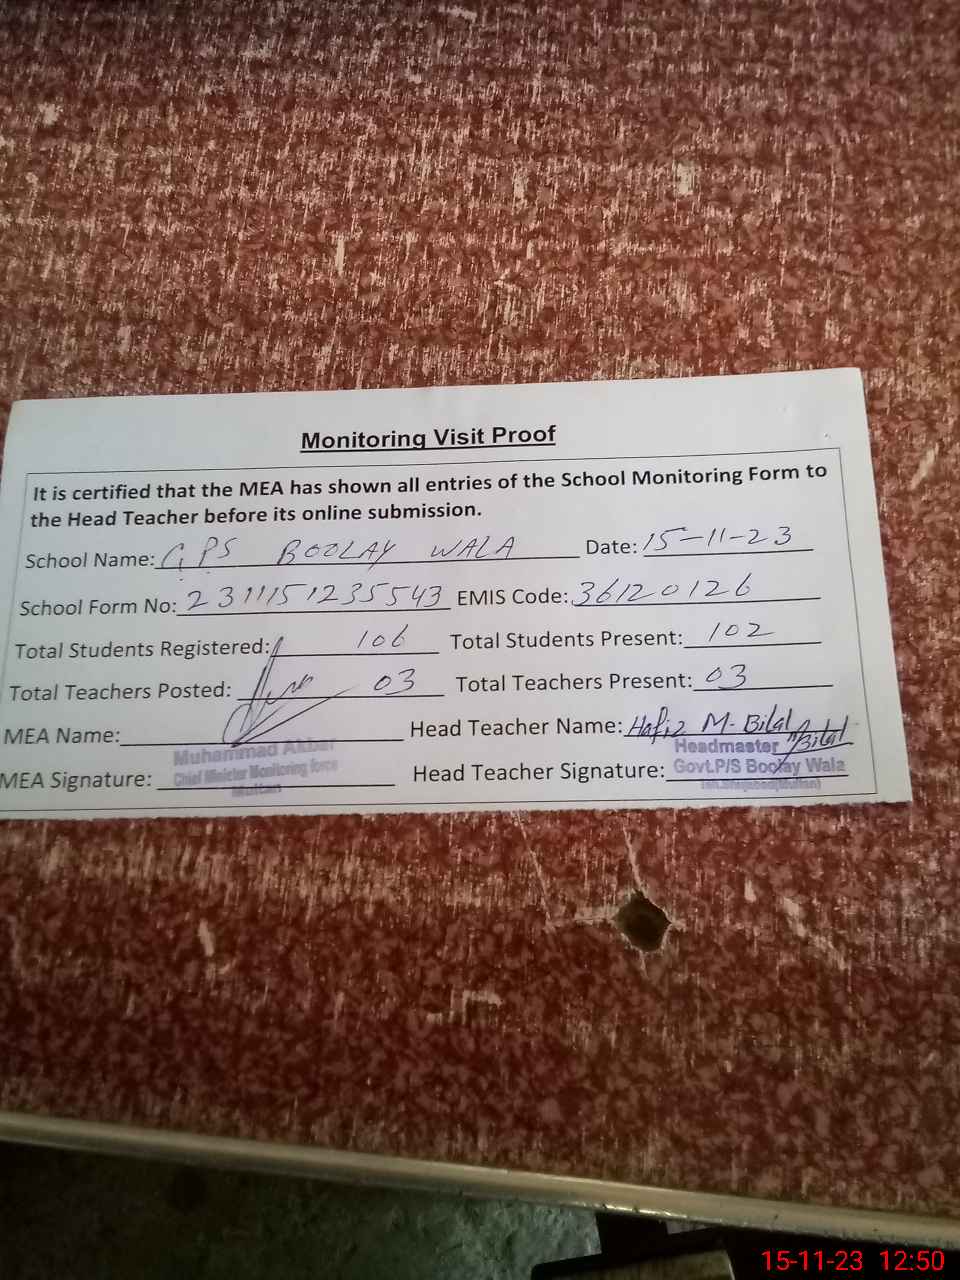 Monitoring Visit Proof
It is certified that the MEA has shown all entries of the School Monitoring Form to
the Head Teacher before its online submission.
School Name: GPS BOOLAY WALA Date: 15-11-23
School Form No: 2311151235543 EMIS Code: 36120126
Total Students Registered: 106 Total Students Present: 102
Total Teachers Posted: 03 Total Teachers Present: 03
MEA Name: Head Teacher Name: Hafiz M. Bilal
MEA Signature: Head Teacher Signature: Bilal
Muhammad Akbar
Chief Minister Monitoring force
Multan
Headmaster
Govt.P/S Boolay Wala
15-11-23 12:50